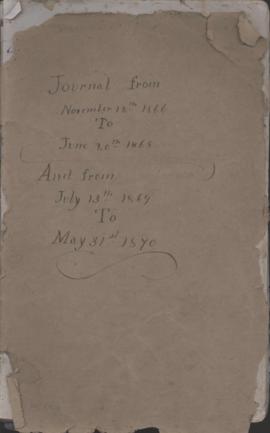 Journal from
November 12th 1866
To
June 20th 1868
And from
July 13th 1869
To
May 31st 1870